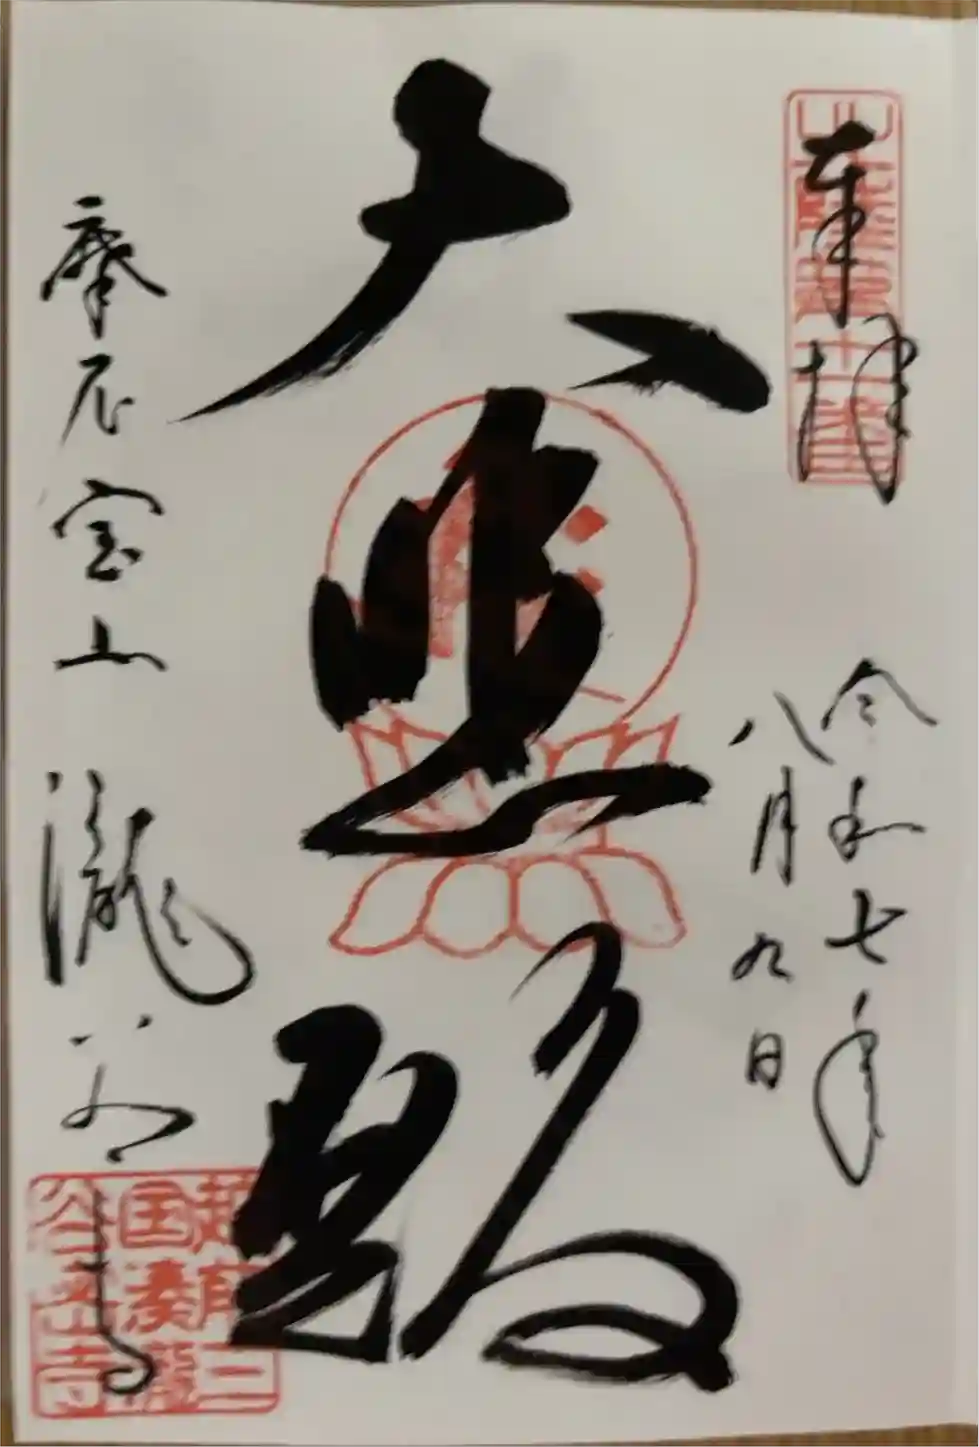 奉拝
令和七年
八月九日
大悲殿
摩尼宝山
瀧谷寺
越前三
国湊瀧
谷寺